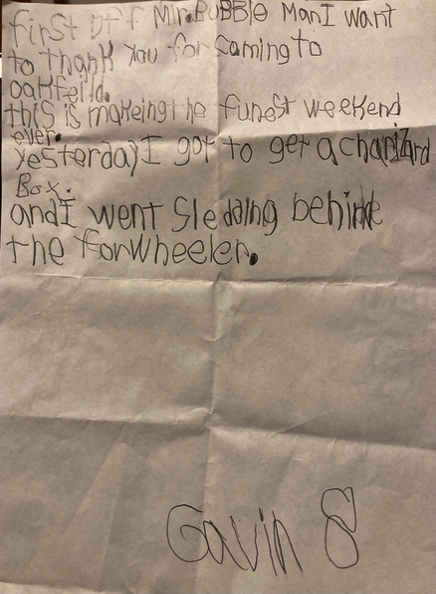 first off Mr.BUBBle Man I want
to thank you for coming to
oakfeild.
this is makeing the funest weekend
ever.
yesterday I got to get a charizard
Box.
and I went Sledding behind
the forwheeler.
Gavin 8